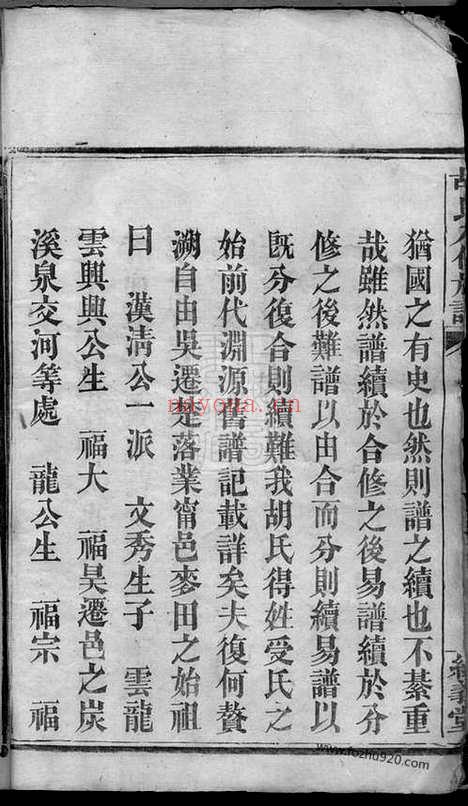 猶國之有史也然則譜之續也不綦重
哉雖然譜續於合修之後易譜續於分
修之後難譜以由合而分則續易譜以
既分復合則續難我胡氏得姓受氏之
始前代淵源舊譜記載詳矣夫復何贅
溯自由吳遷楚落業甯邑麥田之始祖
曰　漢清公一派　文秀生子　雲龍
雲興興公生　福大　福昊遷邑之炭
溪泉交河等處　龍公生　福宗　福
nayona.com
www.fozhu920.com